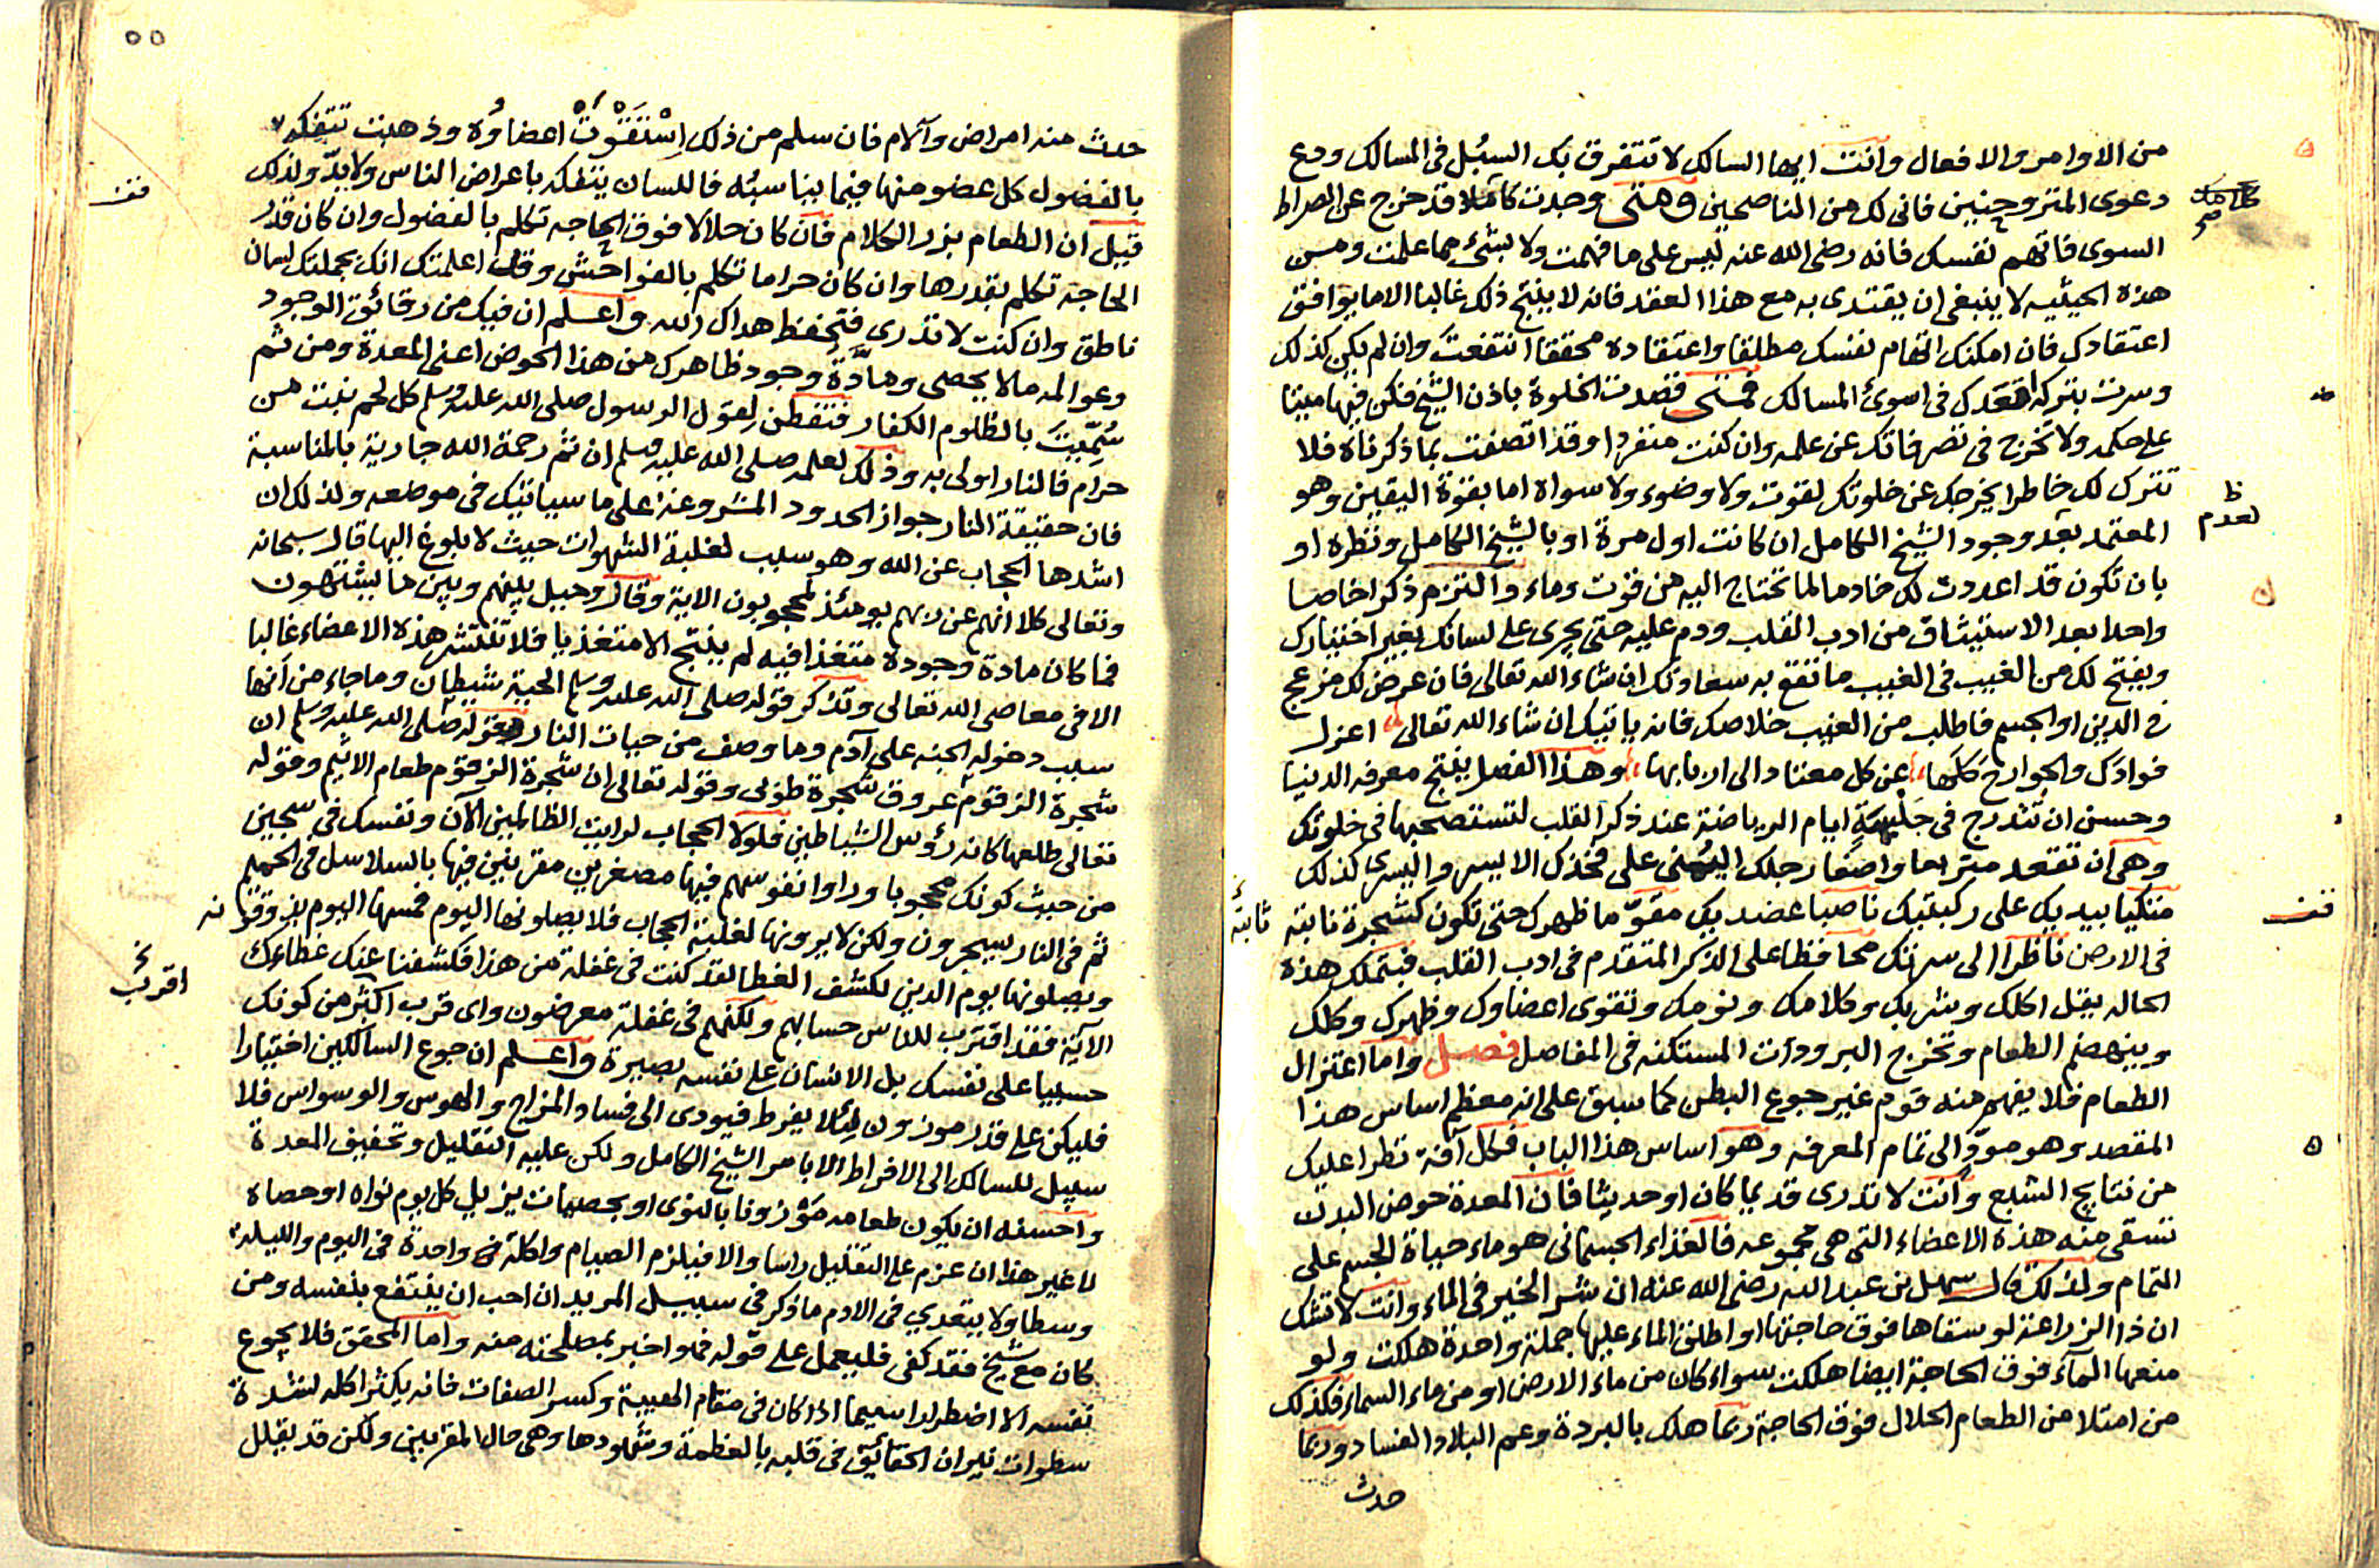 من الاوامر والافعال وانت ايها السالك لا تتفرق بك السبل فى المسالك ودع
دعوى المتزوحنين فانى لك من الناصحين ومتى وجدت كاملا قد خرج عن الصراط
السوى فاتهم نفسك فانه رضى الله عنه ليس على ما فهمت ولا بشىء مما علمت ومن
هذه الحيثيه لا ينبغى ان يقتدى به مع هذا العقد فانه لا ينتج ذلك غالبا الا ما يوافق
اعتقادك فان امكنك اتهام نفسك مطلقا واعتقاده محققا انتفعت وان لم يكن كذلك
وسرت بتركه اقعدك فى اسوئ المسالك فمتى قصدت الخلوة باذن الشيخ فكن فيها ميتا
على حكمه ولا تخرج فى تصرفاتك عن علمه وان كنت منفردا وقد اتصفت بما ذكرناه فلا
تترك لك خاطرا يخرجك عن خلوتك لقوت ولا وضوء ولا سواه اما بقوة اليقين وهو
المعتمد بعد وجود الشيخ الكامل ان كانت اول مرة او بالشيخ الكامل ونظره او
بان تكون قد اعددت لك خادما لما تحتاج اليه من قوت وماء والتزم ذكرا خاصا
واحدا بعد الاستيثاق من ادب القلب ودم عليه حتى يجرى على لسانك بغير اختيارك
ويفتح لك من الغيب فى الغيب ما تقع به سعادتك ان شاء الله تعالى فان عرض لك مزعج
فى الدين او الجسم فاطلب من الغيب خلاصك فانه ياتيك ان شاء الله تعالى اعزل
فوادك والجوارح كلها عن كل معتاد الى اربابها وهذا الفصل ينتج معرفه الدنيا
وحسن ان تندرج فى جلسة ايام الرياضة عند ذكر القلب لتستصحبها فى خلوتك
وهى ان تقعد متربعا واضعا رجلك اليمنى على فخذك الايسر واليسرى كذلك
متكيا بيديك على ركبتيك ناصبا عضديك مقوما ظهرك حتى تكون كشجرة نابتة
فى الارض ناظرا الى سرتك محافظا على الذكر المتقدم فى ادب القلب فبتملك هذه
الحاله يقل اكلك وشربك وكلامك ونومك وتقوى اعضاوك وظهرك وكلك
وينهضم الطعام وتخرج البرودات المستكنه فى المفاصل فصل واما اعتزال
الطعام فلا يفهم منه قوم غير جوع البطن كما سبق على انه معظم اساس هذا
المقصد وهو مود الى تمام المعرفه وهو اساس هذا الباب فكل آفة تطرا عليك
من نتايج الشبع وانت لا تدرى قديما كان او حديثا فان المعدة حوض البدن
تسقى منه هذه الاعضاء التى هى مجموعه فالغذاء الجسمانى هو ماء حياة الجسم على
التمام ولذلك قال سهل بن عبد الله رضى الله عنه ان سر الخير فى الماء وانت لا تشك
ان ذا الزراعة لو سقاها فوق حاجتها او اطلق الماء عليها جملة واحدة هلكت ولو
منعها المآء فوق الحاجة ايضا هلكت سواء كان من ماء الارض او من ماء السماء فكذلك
من امتلا من الطعام الحلال فوق الحاجة ربما هلك بالبردة وعم البلاد الفساد وربما
حدث
لعدم
ثابتة
٥٥
حدث منه امراض وآلام فان سلم من ذلك استقوت اعضاؤه وذهبت تتفكه
بالفضول كل عضو منها فيما يناسبه فاللسان يتفكه باعراض الناس ولا بد ولذلك
قيل ان الطعام بزر الكلام فان كان حلالا فوق الحاجه تكلم بالفضول وان كان قدر
الحاجة تكلم بقدرها وان كان حراما تكلم بالفواحش وقد اعلمتك انك بجملتك لسان
ناطق وان كنت لا تدرى فتحفظ هداك الله واعلم ان فيك من رقائق الوجود
وعوالمه ما لا يحصى ومادة وجود ظاهرك من هذا الحوض اعنى المعدة ومن ثم
سميت بالظلوم الكفار فتفطن لقول الرسول صلى الله عليه وسلم كل لحم نبت من
حرام فالنار اولى به وذلك لعلمه صلى الله عليه وسلم ان ثم رحمة الله جارية بالمناسبة
فان حقيقة النار جواز الحدود المشروعة على ما سياتيك فى موضعه ولذلك ان
اشدها الحجاب عن الله وهو سبب لغلبة الشهوات حيث لا بلوغ اليها قال سبحانه
وتعالى كلا انهم عن ربهم يومئذ لمحجوبون الاية وقال وحيل بينهم وبين ما يشتهون
فما كان مادة وجوده متغذا فيه لم ينتج الا متغذيا فلا تنتشر هذه الاعضاء غالبا
الا فى معاصى الله تعالى وتذكر قوله صلى الله عليه وسلم الحية شيطان وما جاء من انها
سبب دخوله الجنة على آدم وما وصف من حيات النار وقوله صلى الله عليه وسلم ان
شجرة الزقوم عروق شجرة طوبى وقوله تعالى ان شجرة الزقوم طعام الاثيم وقوله
تعالى طلعها كانه رؤس الشياطين فلولا الحجاب لرايت الظالمين الآن ونفسك فى سجين
من حيث كونك محجوبا وراوا نفوسهم فيها مصغرين مقرنين فيها بالسلاسل فى الحميم
ثم فى النار يسجرون ولكن لا يرونها لغلبة الحجاب فلا يصلونها اليوم فمسها اليوم يذوقونه
ويصلونها يوم الدين لكشف الغطا لقد كنت فى غفلة من هذا فكشفنا عنك غطاءك
الآية فقد اقترب للناس حسابهم ولكنهم فى غفلة معرضون واى قرب اكثر من كونك
حسيبا على نفسك بل الانسان على نفسه بصيرة واعلم ان جوع السالكين اختيارا
فليكن على قدر موزون لئلا يفرط فيودى الى فساد المزاج والهوس والوسواس فلا
سبيل للسالك الى الافراط الا بامر الشيخ الكامل ولكن عليه التقليل وتخفيف المعدة
واحسنه ان يكون طعامه موزونا بالنوى او بحصيات يزيل كل يوم نواه او حصاه
لا غير هذا ان عزم على التقليل راسا والا فيلزم الصيام واكلة واحدة فى اليوم والليلة
وسطا ولا يتعدي فى الادم ما ذكر فى سبيل المريد ان احب ان ينتفع بنفسه ومن
كان مع شيخ فقد كفى فليعمل على قوله فهو اخبر بمصلحته منه واما المحقق فلا يجوع
نفسه الا اضطرارا سيما اذا كان فى مقام الهيبة وكسر الصفات فانه يكثر اكله لشدة
سطوات نيران الحقائق فى قلبه بالعظمة وشهودها وهى حال المقربين ولكن قد يقلل
قف
اقرب